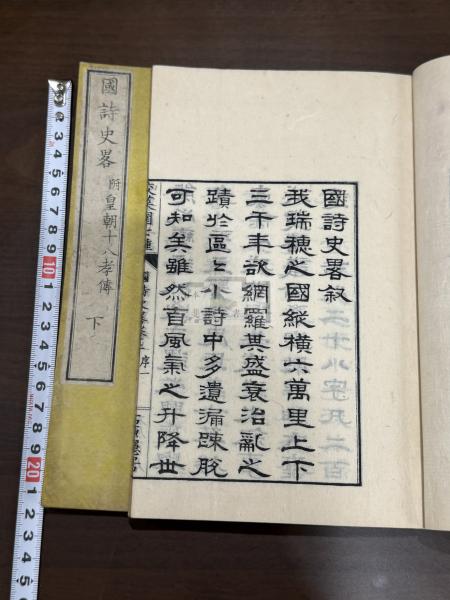 國詩史畧敘
我瑞穗之國縱橫六萬里上下
三千年欲網羅其盛衰治亂之
蹟於區々小詩中多遺漏疎脫
可知矣雖然百風氣之升降世
國詩史畧 附皇朝十八孝傳 下
1 2 3 4 5 6 7 8 9 10 1 2 3 4 5 6 7 8 9 20 1 2 3 4